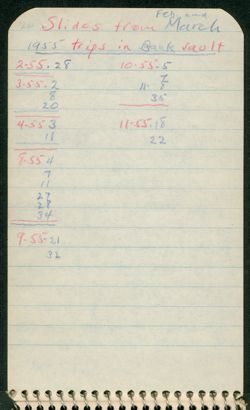 Feb and
Slides from March
1955 trips in Bank vault
2-55.28
3-55.2
8
20
4-55 3
18
8-55 4
7
11
27
28
34
9-55-21
32
10-55-5
7
11-8
35
11-55.18
22